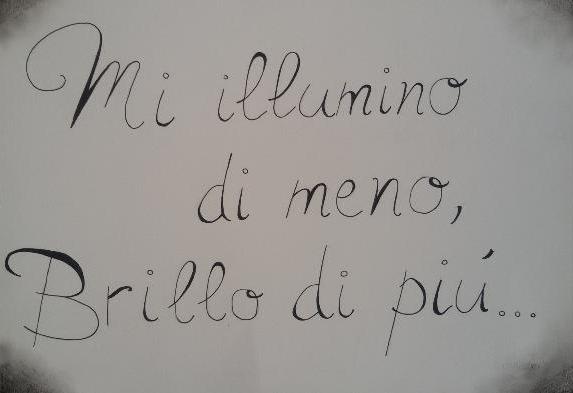 Mi illumino
di meno,
Brillo di piú...